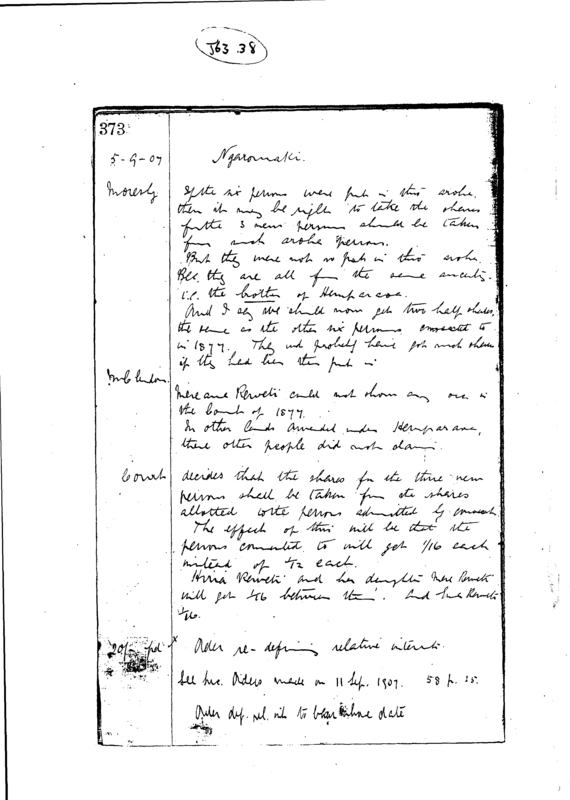 J63.38
373
5-9-07 Ngaromaki.
Moresby If the six persons were put in this aroha
then it may be right to take the shares
for the 3 new persons should be taken
from such aroha persons.
But they were not so put in this aroha.
Bec. they are all from the same ancestry
i.e. the brother of Hemparaoa.
And I say we should now get two half shares,
the same as the other six persons consented to
in 1877. They wd probably have got such shares
if they had been then put in
Mere ana Reweti could not show any occ. in
the Court of 1877.
In other lands awarded under Hemparaoa,
these other people did not claim.
Court decides that the shares for the three new
persons shall be taken from the shares
allotted to the persons admitted by consent
The effect of this will be that the
persons consented to will get 1/16 each
instead of 1/12 each.
Hiria Reweti and her daughter Mere Reweti
will get 1/16 between them. And Reweti
1/16.
20/- pd x Order re-defining relative interests.
See Orders made on 11 Sep. 1907. 58 p. 25.
Order def. rel. int to bear above date